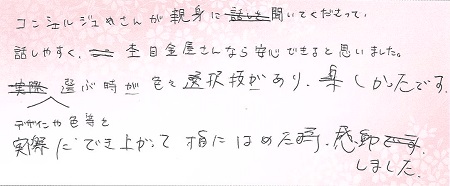 コンシェルジュめさんが親身に聞いてくださって、
話しやすく、杢目金屋さんなら安心できると思いました。
実際 選ぶ時が色々選択技があり、楽しかったです。
デザインや色等を
実際にでき上がって指にはめた時、感動
しました。